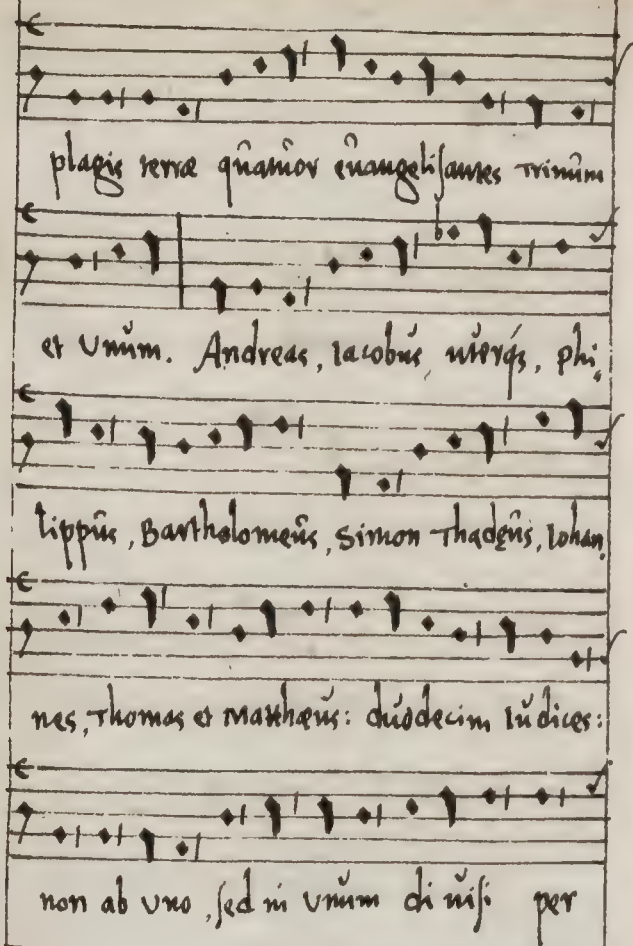 plagis terræ quatuor euangelisantes Trinum
et Vnum. Andreas, Iacobus, uterqs, phi,
lippus, Bartholomeus, Simon Thadeus, Iohan,
nes, Thomas et Matthæus: duodecim Iudices:
non ab vno, sed in vnum diuisi per